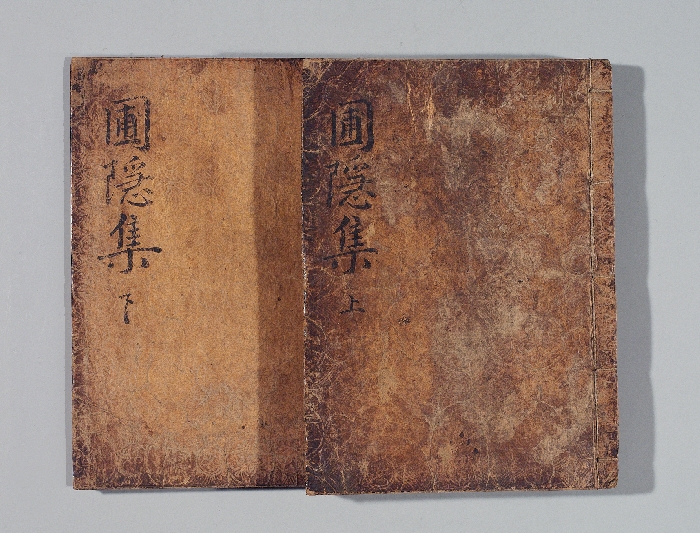 圃隱集
上
圃隱集
下